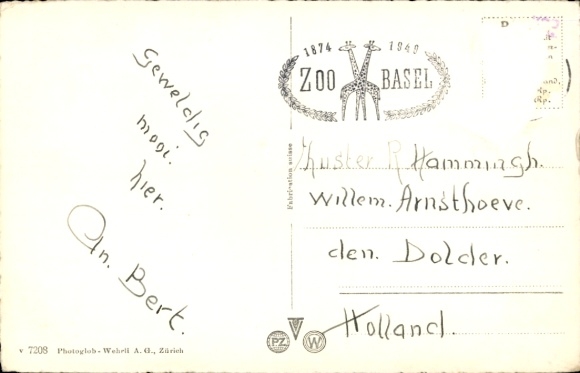 1874 1949
ZOO BASEL
D
Geweldig
mooi.
hier.
An. Bert.
Fabrication suisse
Zuster R Hammingh.
Willem. Arnsthoeve.
den. Dolder.
Holland.
PZ W
v 7208 Photoglob-Wehrli A. G., Zürich